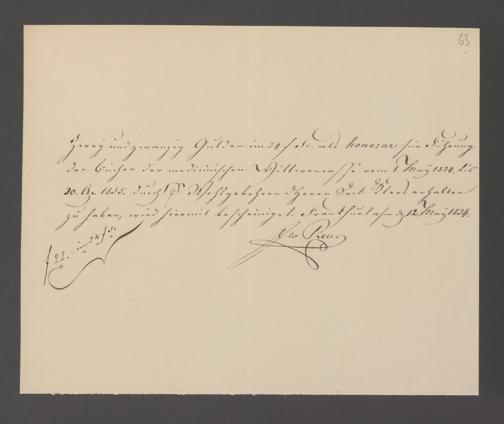 63
Zwey und zwanzig Gulden im 24 f Fs. als honorar für Führung
der Bücher der medicinischen Wittwencasse vom 1 May 1834. bis
30. Ap. 1835. durch Sr Wohlgebohren Herrn erhalten
zu haben, wird hiermit bescheiniget. Frankfurt a/m d. 12 May 1834.
f 22. im 24 f Fs.